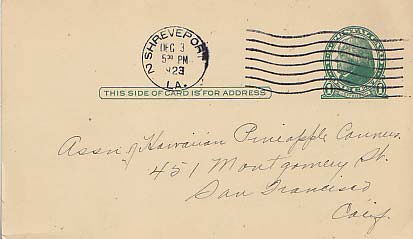 SHREVEPORT
DEC 3
5 30 PM
1923
2 LA.
THIS SIDE OF CARD IS FOR ADDRESS
Assn of Hawaiian Pineapple Canners.
451 Montgomery St.
San Francisco
Calif.